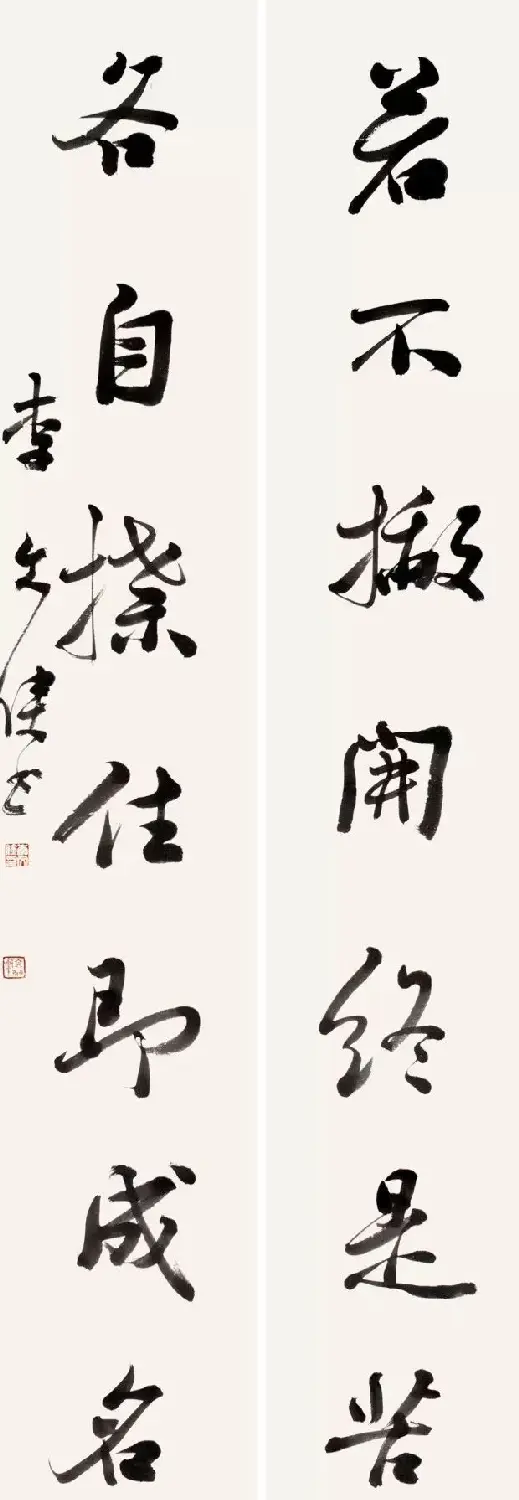 若不撇開終是苦
各自捺住即成名
李文俠书